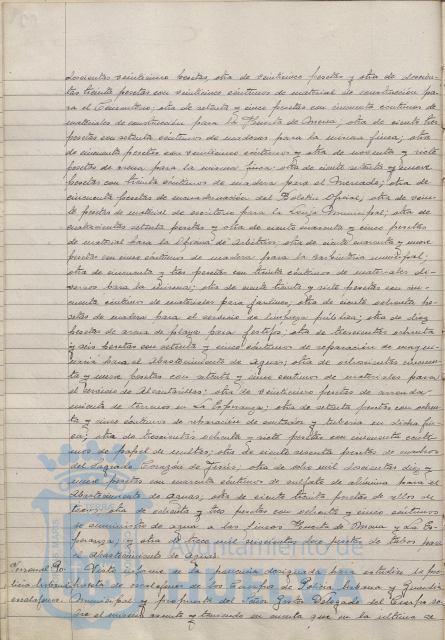 doscientas veinticinco pesetas, otra de veinticinco pesetas y otra de doscien-
tas treinta pesetas con veinticinco céntimos de material de construcción pa-
ra el Cementerio; otra de setenta y cinco pesetas con cincuenta céntimos de
materiales de construcción para la de otra de ciento tres
pesetas con setenta céntimos de maderas para la misma finca; otra
de cincuenta pesetas con veinticinco céntimos y otra de noventa y siete
pesetas de para la misma finca; otra de ciento setenta y nueve
pesetas con treinta céntimos de madera para el Mercado; otra de
cincuenta pesetas de encuadernación del Boletín Oficial; otra de vein-
te pesetas de material de escritorio para la Municipal; otra de
cuatrocientas setenta pesetas y otra de ciento noventa y cinco pesetas
de material para la Oficina de Arbitrios; otra de ciento cuarenta y nueve
pesetas con cinco céntimos de madera para la municipal;
otra de cincuenta y tres pesetas con treinta céntimos de materiales di-
versos para la misma; otra de ciento treinta y siete pesetas con cin-
cuenta céntimos de materiales para jardines; otra de ciento ochenta pe-
setas de madera para el servicio de limpieza pública; otra de diez
pesetas de arena de playa para festejos; otra de trescientas ochenta
y seis pesetas con setenta y cinco céntimos de reparación de maqui-
naria para el Abastecimiento de aguas; otra de ochocientas cincuen-
ta y nueve pesetas con setenta y cinco céntimos de materiales para
el servicio de Alcantarillas; otra de veinticinco pesetas de arrenda-
miento de terrenos en La Esperanza; otra de setenta pesetas con ochen-
ta y cinco céntimos de reparación de contador y tubería en dicha fin-
ca; otra de trescientas ochenta y siete pesetas con cincuenta cénti-
mos de papel de multas; otra de ciento sesenta pesetas de cuadros
del Sagrado Corazón de Jesús; otra de ocho mil doscientas diez y
nueve pesetas con cuarenta céntimos de sulfato de alúmina para el
Abastecimiento de aguas; otra de ciento treinta pesetas de sellos de
otra de ochenta y tres pesetas con ochenta y cinco céntimos
de suministro de agua a las fincas y La Es-
peranza; y otra de trece mil seiscientas doce pesetas de tubos para
el abastecimiento de aguas.
Visto informe de la ponencia designada para estudiar la po-
de escalafones de los Cuerpos de Policía Urbana y Guardia
escalafones. Municipal y propuesta del Señor Gestor Delegado del Cuerpo so-
bre el mismo asunto y teniendo en cuenta que no la ultima de
Ayuntamiento de